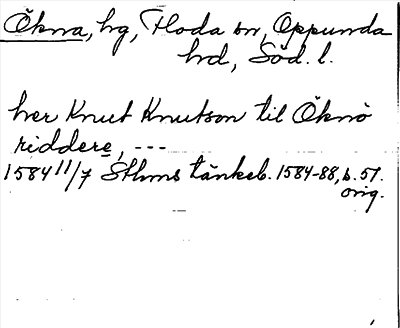 Ökna, hg, Floda sn, Oppunda
hd, Söd. l.
her Knut Knutson til Öknö
riddere, ---
1584 11/7 Sthms tänkeb. 1584-88, s. 57.
orig.